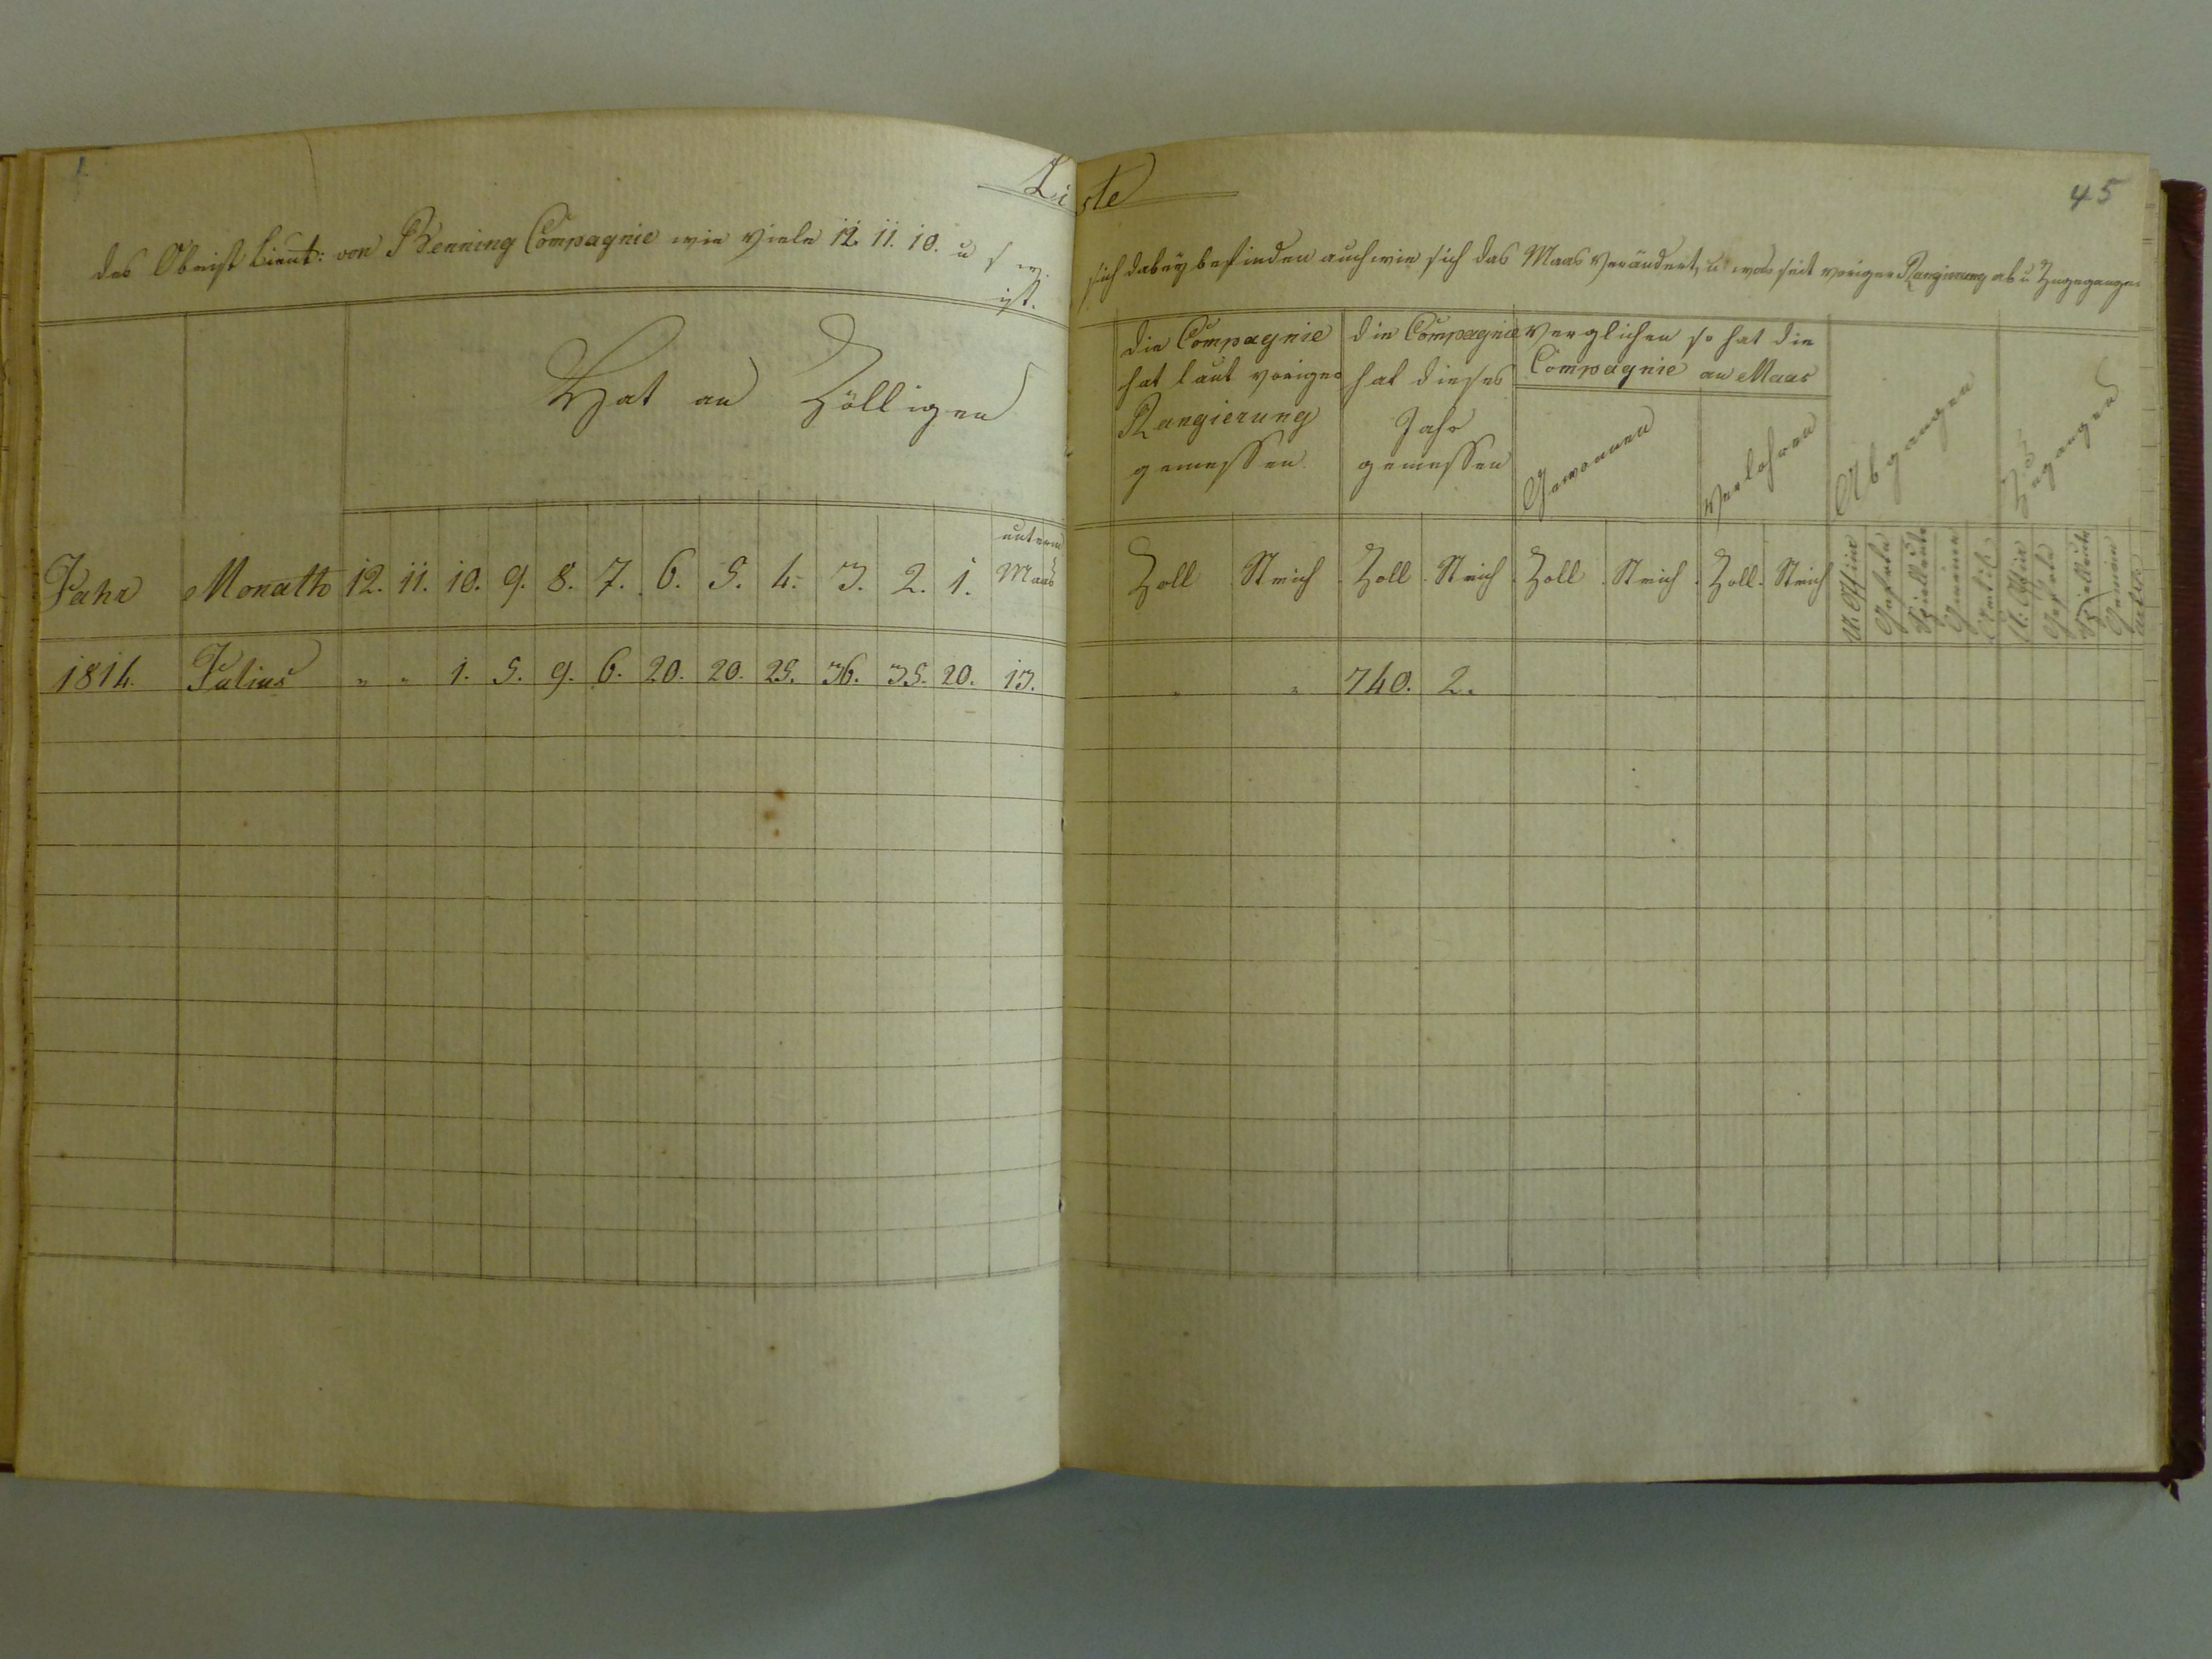 Liste
45
des Obrist Lieut: von Benning Compagnie wie viele 12. 11. 10. u s w. sich dabey befinden auch wie sich das Maas verändert, u was seit voriger Rangierung ab u Zugegangen
ist.
Hat an Zölligen
die Compagnie hat laut voriger Rangierung gemessen.
die Compagnie hat dieses Jahr gemessen
Verglichen so hat die Compagnie an Maas
Gewonnen
Verlohren
Abgangen
Zugangen
Jahr Monath 12. 11. 10. 9. 8. 7. 6. 5. 4. 3. 2. 1. unterm Maas
Zoll Strich Zoll Strich Zoll Strich Zoll Strich
U. Offier Gefreite Spielleute Gemeine
U. Offier Gefreite Spielleute Gemeine
1814. Julius " " 1. 5. 9. 6. 20. 20. 25. 36. 35. 20. 13. " " 740. 2.